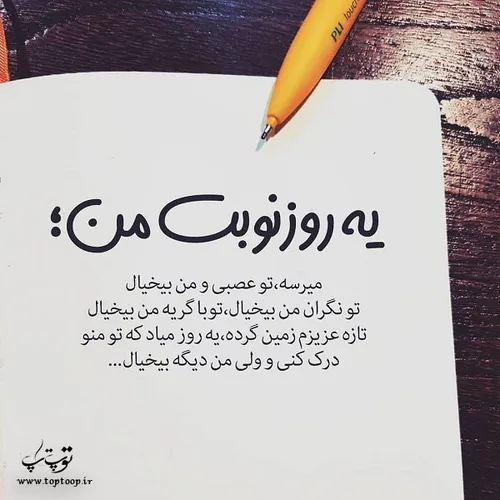 یه روز نوبت من؛
میرسه،تو عصبی و من بیخیال
تو نگران من بیخیال،تو با گریه من بیخیال
تازه عزیزم زمین گرده،یه روز میاد که تو منو
درک کنی و ولی من دیگه بیخیال...
توپ تاپ
www.toptoop.ir
PLI touch